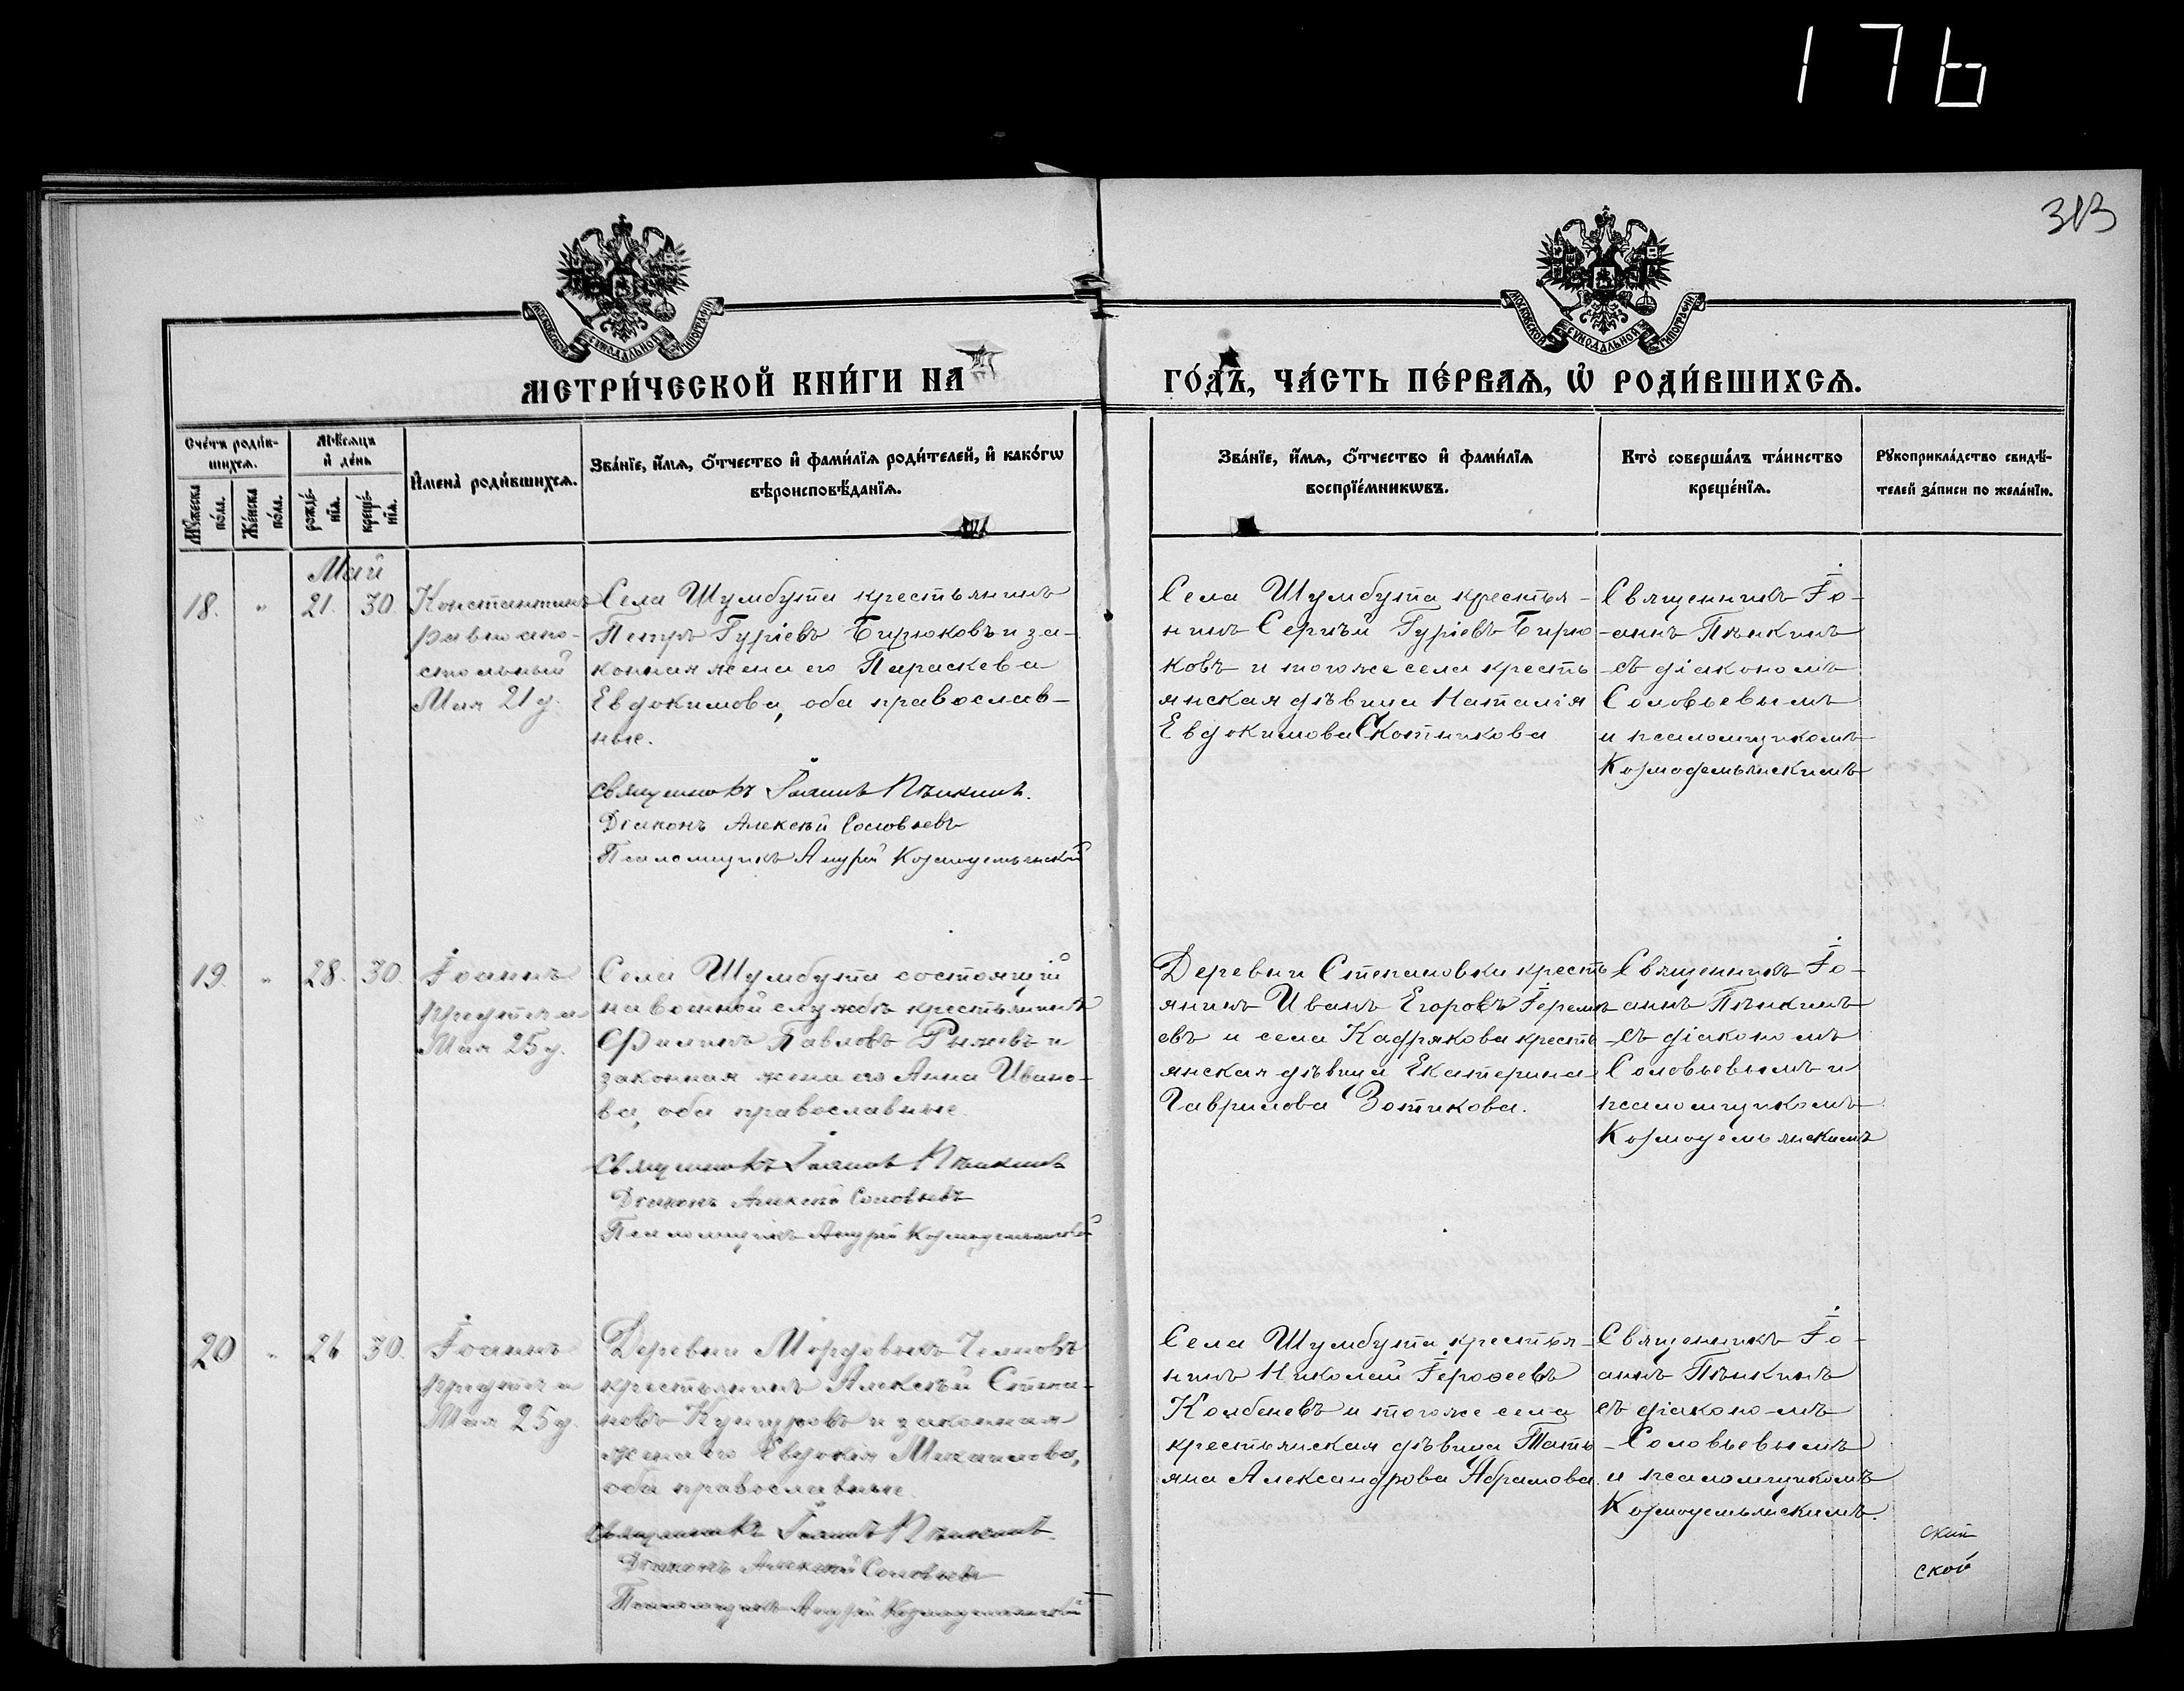 176
313
МОСКОВСКОЙ СѴНОДАЛЬНОЙ ТИПОГРАФІИ
МОСКОВСКОЙ СѴНОДАЛЬНОЙ ТИПОГРАФІИ
МЕТРИ́ЧЕСКОЙ КНИ́ГИ НА
ГО́ДЪ, ЧА́СТЬ ПЕ́РВАѦ, Ѡ҆ РОДИ́ВШИХСѦ.
Сче́тъ роди́в-
шихсѧ.
Мѹ́жеска по́ла.
Же́нска по́ла.
Мѣ́сѧцъ и҆ де́нь
рожде́-нїѧ.
креще́-нїѧ.
И҆мена̀ роди́вшихсѧ.
Зва́нїе, и҆́мѧ, ѻ҆́тчество и҆ фами́лїѧ роди́телей, и҆ како́гѡ
вѣроисповѣ́данїѧ.
Зва́нїе, и҆́мѧ, ѻ҆́тчество и҆ фами́лїѧ
воспрїе́мникѡвъ.
Кто̀ соверша́лъ та́инство
креще́нїѧ.
Рѹкоприкла́дство свидѣ́-
телей за́писи по жела́нїю.
Май
18. " 21. 30.
Константинъ
равноапо-
стольный
Мая 21 д.
Села Шумбута крестьянинъ
Петръ Гуріевъ Бирюковъ и за-
конная жена его Параскева
Евдокимова, оба православ-
ные.
Священникъ Іоаннъ Пѣнкинъ.
Діаконъ Алексѣй Соловьевъ
Псаломщикъ Андрей Космодемьянскій
Села Шумбута крестья-
нинъ Сергѣй Гуріевъ Бирю-
ковъ и того же села кресть
янская дѣвица Наталія
Евдокимова Скотникова
Священникъ Іо-
аннъ Пѣнкинъ
съ діакономъ
Соловьевымъ
и псаломщикомъ
Космодемьянскимъ
19. " 28. 30.
Іоаннъ
предтеча
Мая 25 д.
Села Шумбута состоящій
на военной службѣ крестьянинъ
Филипъ Павловъ Рыжевъ и
законная жена его Анна Ивано-
ва, оба православные.
Священникъ Іоаннъ Пѣнкинъ
Діаконъ Алексѣй Соловьевъ
Псаломщикъ Андрей Космодемьянскій
Деревни Степановки кресть
янинъ Иванъ Егоровъ Іереме
евъ и села Кадрякова кресть
янская дѣвица Екатерина
Гаврилова Зотикова.
Священникъ Іо-
аннъ Пѣнкинъ
съ діакономъ
Соловьевымъ и
псаломщикомъ
Космодемьянскимъ
20 " 26 30.
Іоаннъ
предтеча
Мая 25 д.
Деревни Мордовыхъ Челновъ
крестьянинъ Алексѣй Степа-
новъ Кунгуровъ и законная
жена его Евдокія Михаилова,
оба православные.
Священникъ Іоаннъ Пѣнкинъ
Діаконъ Алексѣй Соловьевъ
Псаломщикъ Андрей Космодемьянскій
Села Шумбута крестья-
нинъ Николай Іероѳеевъ
Колбеневъ и того же села
крестьянская дѣвица Тать
яна Александрова Абрамова.
Священникъ Іо-
аннъ Пѣнкинъ
съ діакономъ
Соловьевымъ
и псаломщикомъ
Космодемьянскимъ.
скій
ской